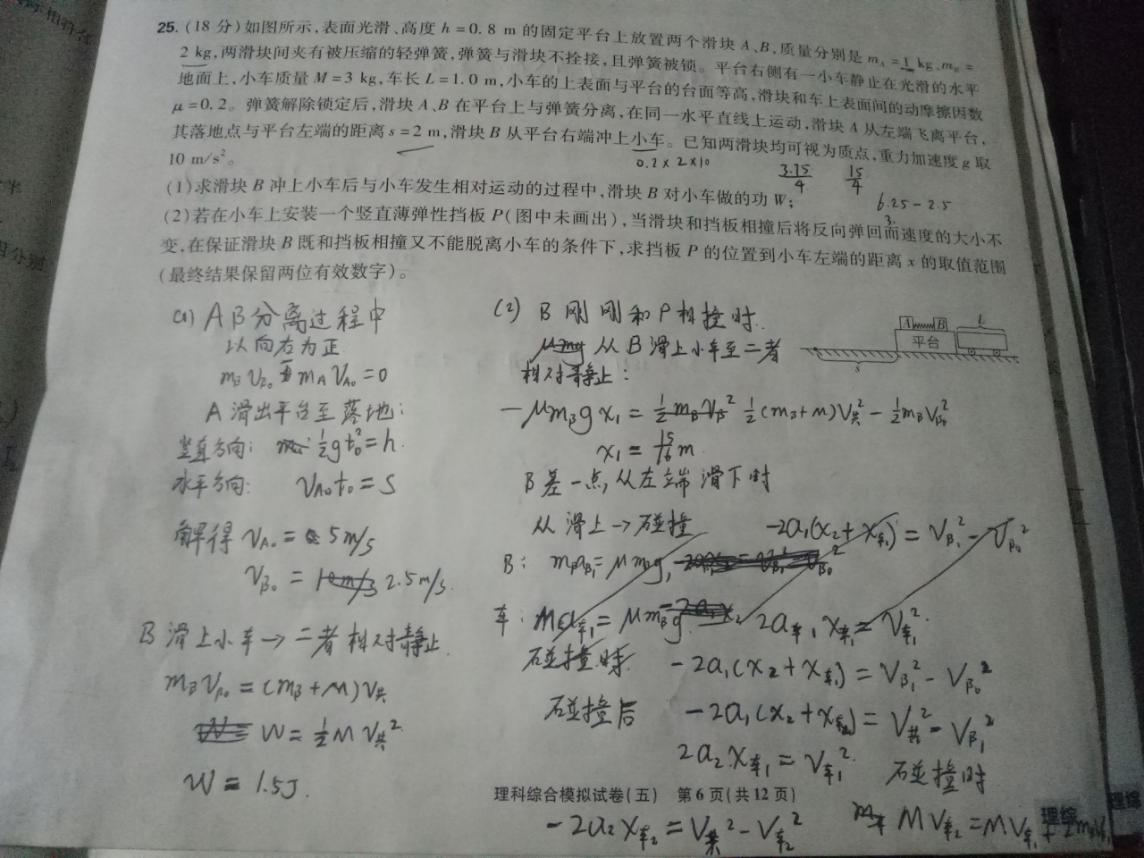 25. (18 分)如图所示,表面光滑、高度 h=0.8 m 的固定平台上放置两个滑块 A、B,质量分别是 m_A=1 kg、m_B=
2 kg,两滑块间夹有被压缩的轻弹簧,弹簧与滑块不拴接,且弹簧被锁。平台右侧有一小车静止在光滑的水平
地面上,小车质量 M=3 kg,车长 L=1.0 m,小车的上表面与平台的台面等高,滑块和车上表面间的动摩擦因数
μ=0.2。弹簧解除锁定后,滑块 A、B 在平台上与弹簧分离,在同一水平直线上运动,滑块 A 从左端飞离平台,
其落地点与平台左端的距离 s=2 m,滑块 B 从平台右端冲上小车。已知两滑块均可视为质点,重力加速度 g 取
10 m/s²。
0.2×2×10
3.75/4
15/4
(1)求滑块 B 冲上小车后与小车发生相对运动的过程中,滑块 B 对小车做的功 W;
6.25-2.5
3.
(2)若在小车上安装一个竖直薄弹性挡板 P(图中未画出),当滑块和挡板相撞后将反向弹回而速度的大小不
变,在保证滑块 B 既和挡板相撞又不能脱离小车的条件下,求挡板 P 的位置到小车左端的距离 x 的取值范围
(最终结果保留两位有效数字)。
A B L
平台
s
(1) AB分离过程中
以向右为正
m_B v_B₀ m_A v_A₀=0
A滑出平台至落地:
竖直方向: ½gt₀²=h.
水平方向: v_A₀t₀=S
解得 v_A₀=5m/s
v_B₀= 2.5m/s.
B滑上小车→二者相对静止.
m_B v_B₀=(m_B+M)v共
W=½Mv共²
W=1.5J.
(2) B刚刚和P相撞时.
从B滑上小车至二者
相对静止:
-μm_B g x₁= ½(m_B+M)v共²-½m_B v_B₀²
x₁=15/16 m
B差一点,从左端滑下时
从滑上→碰撞 -2a₁(x₂+x车₁)=v_B₁²-v_B₀²
B:
车: Ma车₁=μm_B g 2a车₁x车=v车₁²
碰撞时 -2a₁(x₂+x车₁)=v_B₁²-v_B₀²
碰撞后 -2a₁(x₂+x车₂)=v共²-v_B₁²
2a₂x车₁=v车₁². 碰撞时
-2a₂x车₂=v共²-v车₂² Mv车₂=Mv车₁+
理科综合模拟试卷(五) 第 6 页(共 12 页)
理综